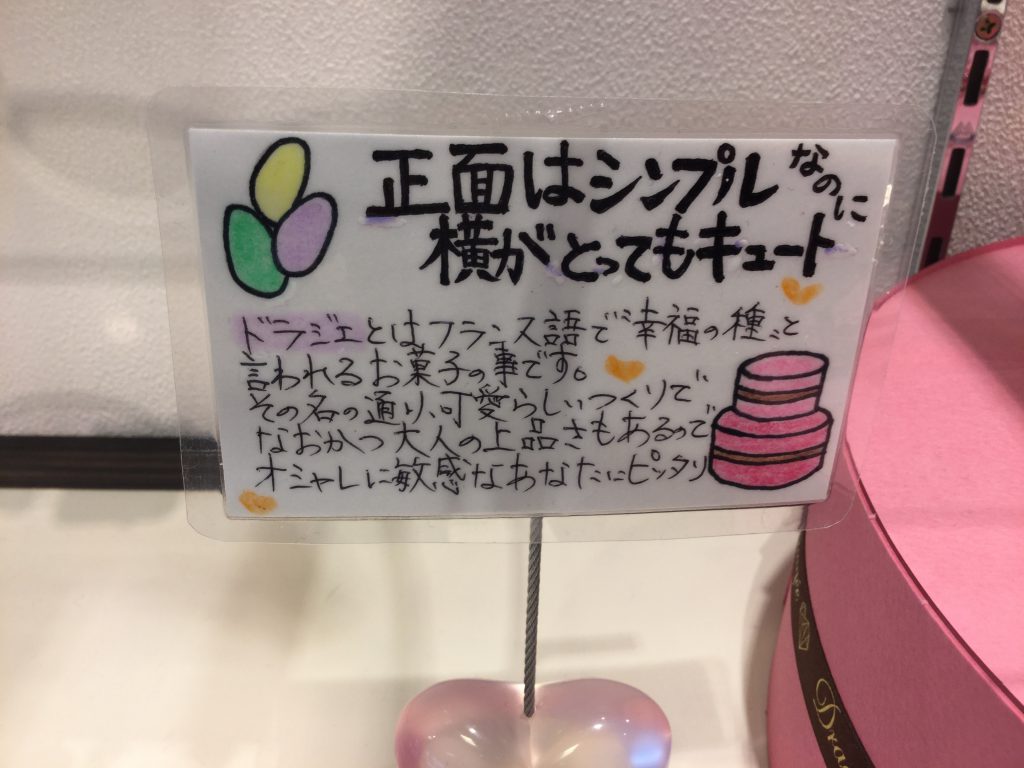 正面はシンプルなのに
横がとってもキュート
ドラジェとはフランス語で〝幸福の種〟と
言われるお菓子の事です。
その名の通り、可愛らしいつくりで
なおかつ大人の上品さもあるので
オシャレに敏感なあなたにピッタリ
Dra